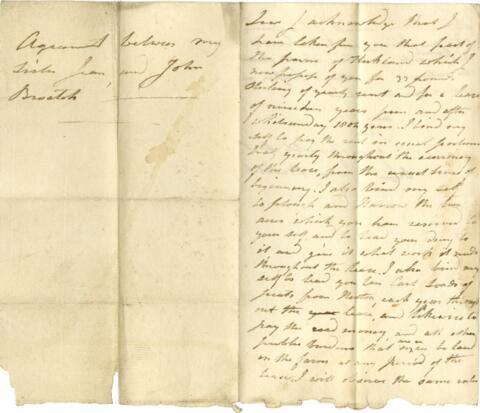 Agreement between my
Sister Jean, and John
Broatch
I acknowledge that I
have taken from you that part of
the farm of which I
now possess of you for 33 pound
Sterling of yearly rent and for a lease
of nineteen years from and after
Whitsunday 1802 years. I bind my
self to pay the rent in equal portions
yearly throughout the currency
of the lease, from the usual time of
beginning. I also bind my self
to plough and harrow the two
acres which you have reserved to
your self and to lead your dung to
it and give it what work it needs
throughout the lease. I also bind my
self to lead you ten Cart loads of
peats from each year through
out the lease, and likewise to
pay the road money and all other
public burdens that may be laid
on the farm at any period of the
lease. I will observe the same rules